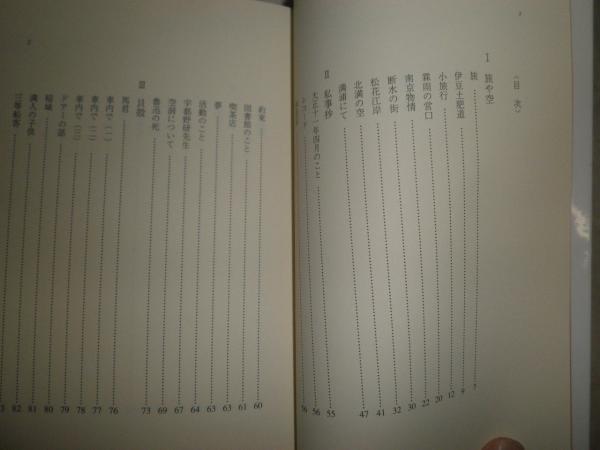 〈目次〉
Ⅰ 旅や空
旅 7
伊豆土肥道 9
小旅行 12
霖雨の営口 20
南京物情 22
断水の街 30
松花江岸 32
北満の空 41
溝浦にて 47
Ⅱ 私事抄 55
大正十一年四月のこと 56
56
約束 60
図書館のこと 61
喫茶店 63
夢 63
活動のこと 64
宇都野研先生 67
空洞について 69
魯迅の死 73
Ⅲ 貝殻
馬君 76
車内で（一） 77
車内で（二） 78
ドアーの話 79
稲城 80
満人の子供 81
三等船客 82
2